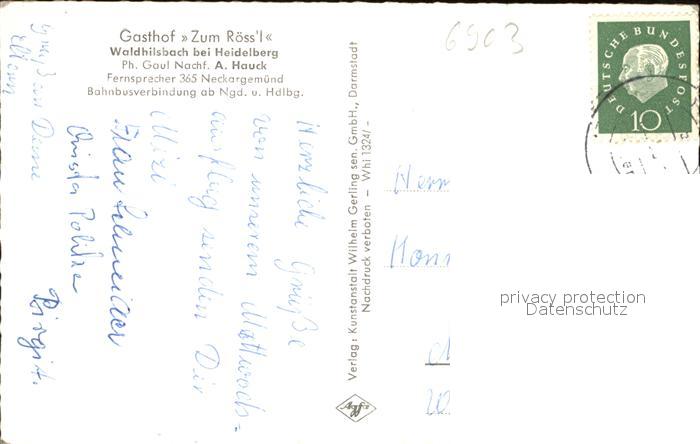 Gasthof »Zum Röss'l«
Waldhilsbach bei Heidelberg
Ph. Gaul Nachf. A. Hauck
Fernsprecher 365 Neckargemünd
Bahnbusverbindung ab Ngd. u. Hdlbg.
6903
DEUTSCHE BUNDESPOST
10
Herzliche Grüße
von unserem Mittwoch-
ausflug senden Dir
Mizi
Frau Schneider
Christa
Birgit.
Deine
Eltern
Verlag: Kunstanstalt Wilhelm Gerling sen. GmbH., Darmstadt
Nachdruck verboten — Whi 1324/ -
Agfa
Herrn
privacy protection
Datenschutz